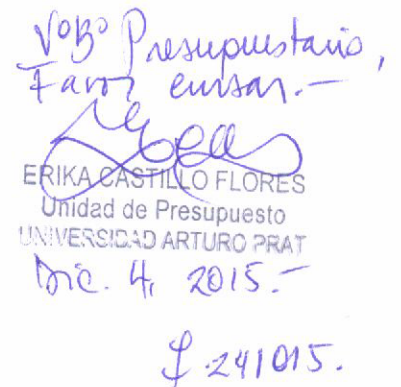 VºBº Presupuestario,
Favor cursar.-
ERIKA CASTILLO FLORES
Unidad de Presupuesto
UNIVERSIDAD ARTURO PRAT
Dic. 4, 2015.-
241015.